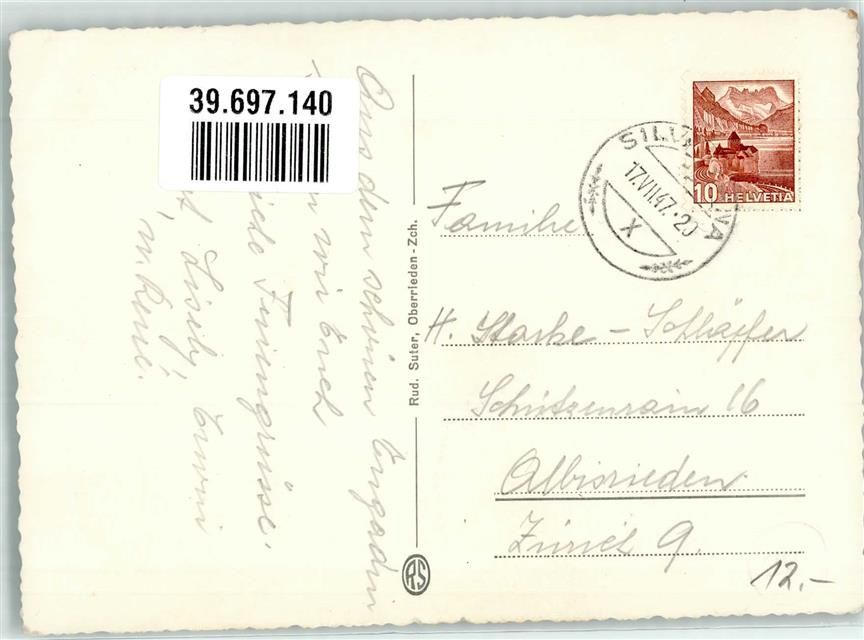 39.697.140
Aus dem schönen Engadin
wir Euch
Feriengrüsse.
Liseby, Erwin
u. René.
Rud. Suter, Oberrieden-Zch.
RS
SILVAPLANA
17.VII.47.-20
X
10 HELVETIA
Familie
H. Starke - Schläpfer
Schützenrain 16
Albisrieden
Zürich 9.
12.-